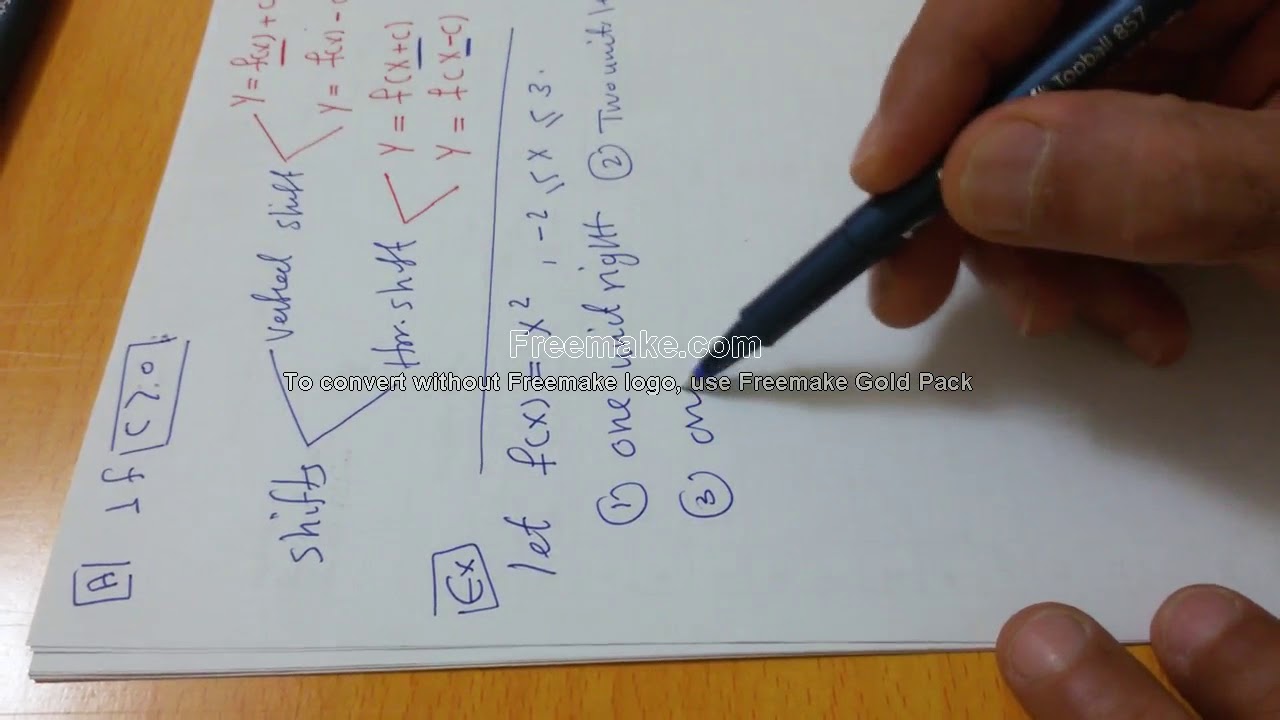 A If C ≥ 0
y = f(x) + c
Vertical shift
y = f(x) - c
shifts
y = f(x + c)
Hor. shift
y = f(x - c)
Ex
let f(x) = x², -2 ≤ x ≤ 3.
① one unit right ② Two unit
③ on
Freemake.com
To convert without Freemake logo, use Freemake Gold Pack
Topball 857